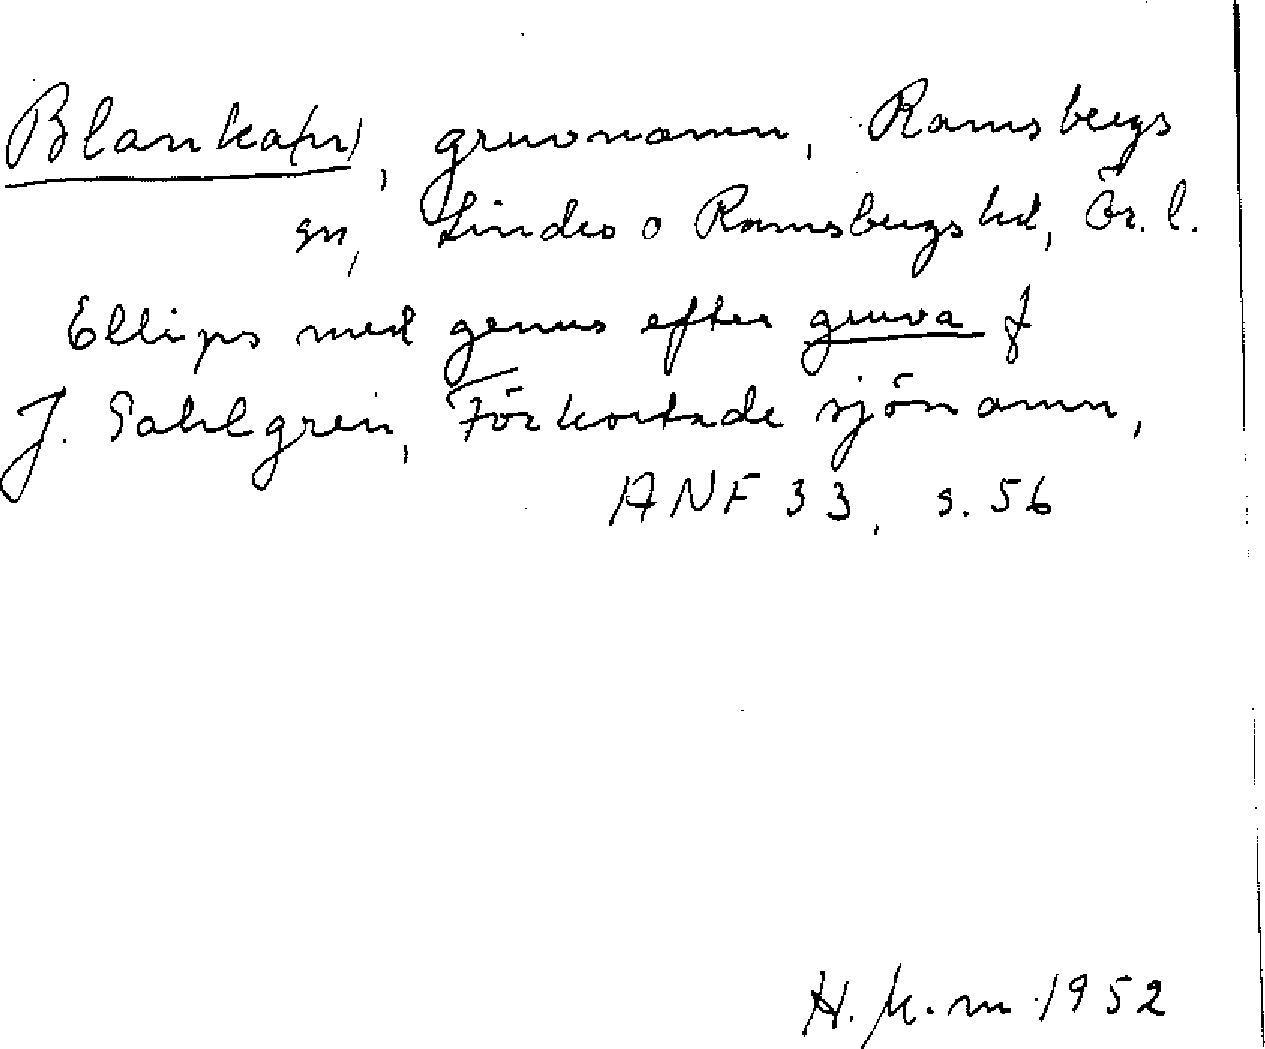 Blanka(n), gruvnamn, Ramsbergs
sn, Lindes o Ramsbergs hd, Ör. l.
Ellips med genus efter gruva f
J. Sahlgren, Förkortade sjönamn,
ANF 33, s. 56
H. k. m 1952